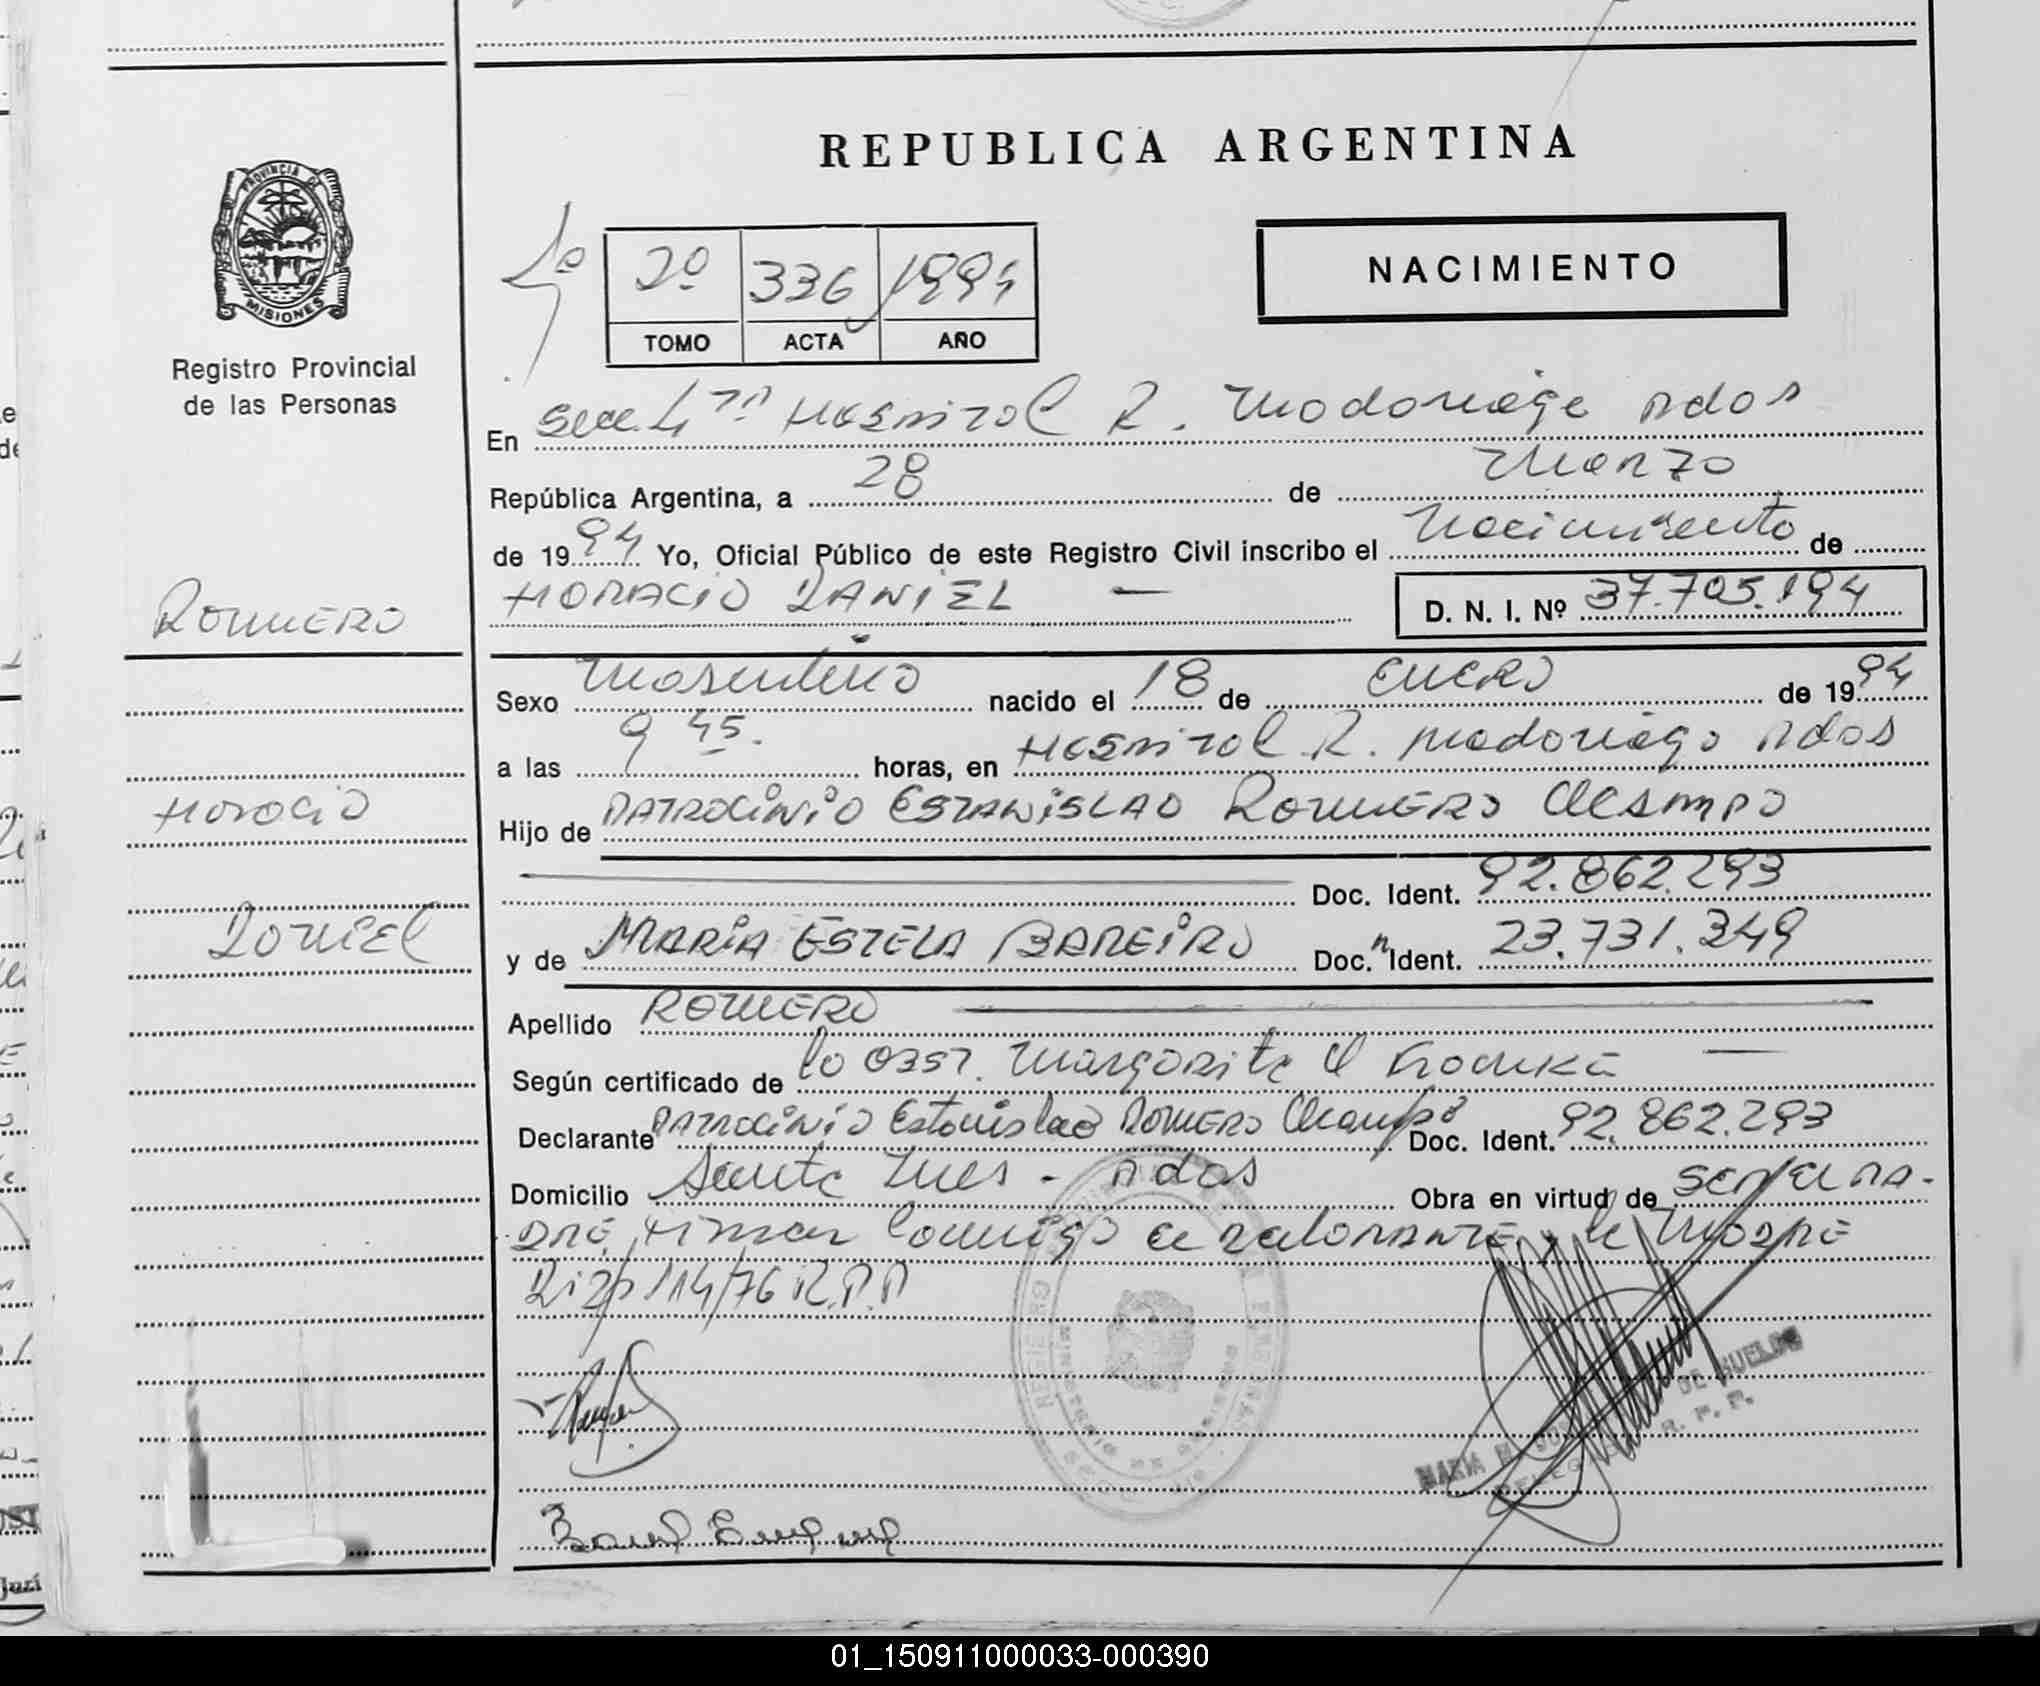 REPUBLICA ARGENTINA
PROVINCIA DE
MISIONES
Registro Provincial
de las Personas
2º 336 1994
TOMO ACTA AÑO
NACIMIENTO
En Secc. 4ta Hospital R. Madariaga Pdas
República Argentina, a 28 de Marzo
de 1994 Yo, Oficial Público de este Registro Civil inscribo el Nacimiento de
HORACIO DANIEL — D. N. I. Nº 37.705.194
ROMERO
Sexo Masculino nacido el 18 de ENERO de 1994
a las 9 45. horas, en Hospital R. Madariaga Pdas
Horacio
Hijo de PATROCINIO ESTANISLAO ROMERO OCAMPO
Doc. Ident. 92.862.293
Daniel
y de MARIA ESTELA BAREIRO Doc. Ident. 23.731.349
Apellido ROMERO
Según certificado de la Obst. Margarita
Declarante PATROCINIO Estanislao ROMERO Ocampo Doc. Ident. 92.862.293
Domicilio Santa Ines - Pdas Obra en virtud de ser el PA-
DRE, Firman Conmigo el declarante y la MADRE
Disp 114/76 R.P.P
MARIA DE HUELMO
R. P. P.
01_150911000033-000390